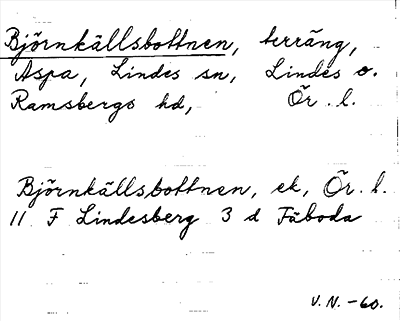 Björnkällsbottnen, terräng,
Aspa, Lindes sn, Lindes o.
Ramsbergs hd, Ör. l.
Björnkällsbottnen, ek, Ör. l.
11 F Lindesberg 3 d Fäboda
V.N. -60.